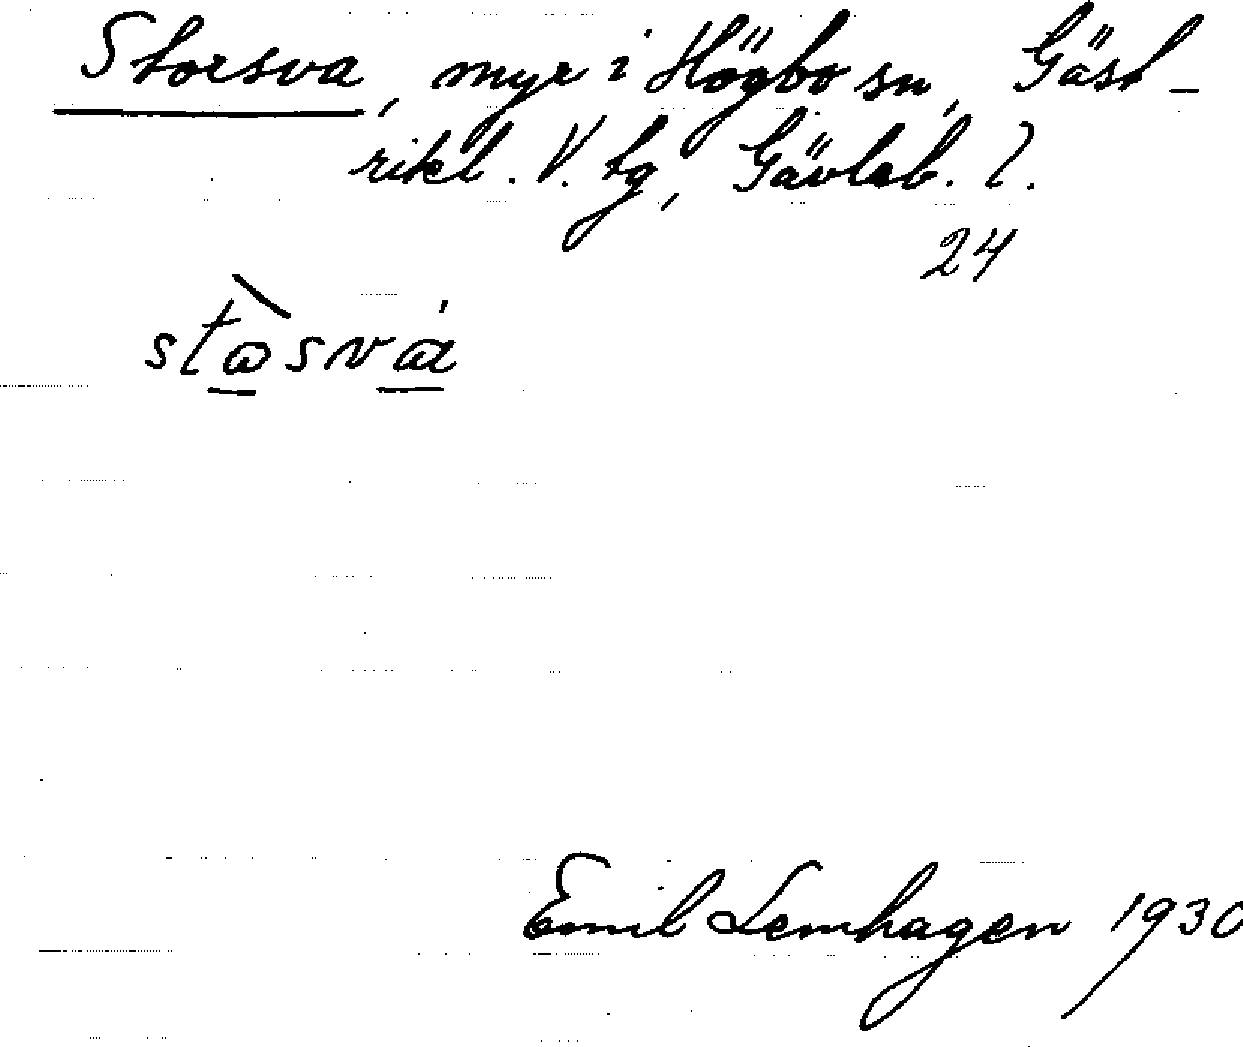 Storsva, myr i Högbo sn, Gäst-
rikl. V. tg, Gävleb. l.
24
stɷ̀svá
Emil Lemhagen 1930